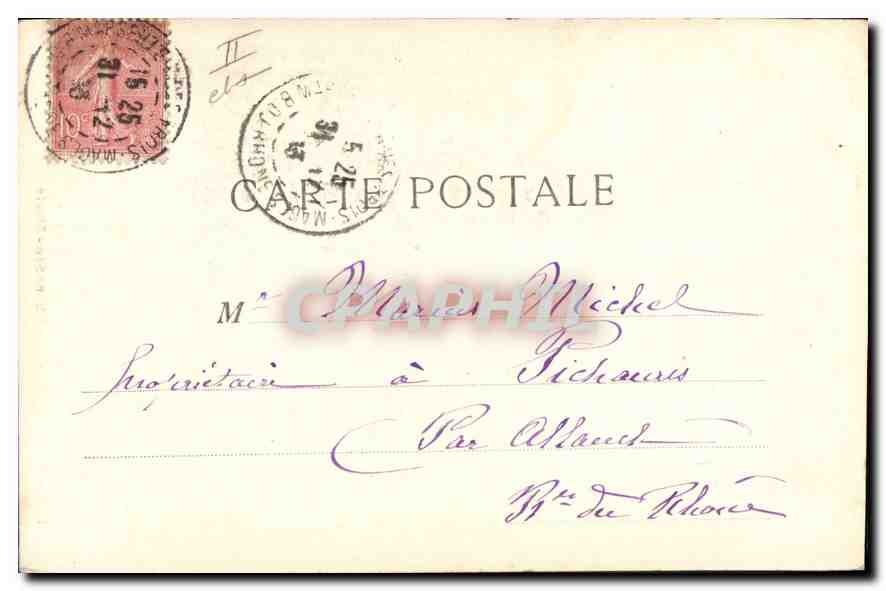 II
CARTE POSTALE
Mr Marius Michel
Propriétaire à Pichauris
Par Allauch
Bhes du Rhône
CPAPHIL
16 25
31 12
10c
5 25
31 12